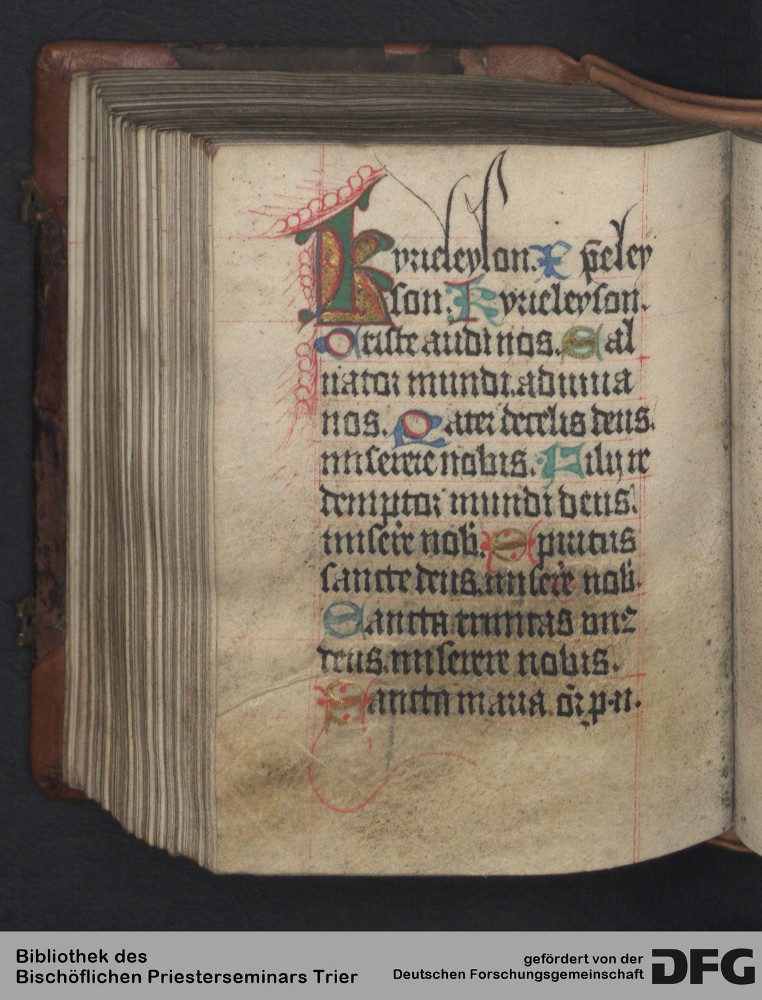 Kyrieleyson. X p̄eley
son. Kyrieleyson.
Criste audi nos. Sal
uator mundi. adiuua
nos. Pater de celis deus.
miserere nobis. Fili re
demptor mundi deus.
misere͛ nob̄. Spiritus
sancte deus. misere͛ nob̄.
Sancta trinitas vn9
deus. miserere nobis.
Sancta maria. or̄ p. n.
Bibliothek des
Bischöflichen Priesterseminars Trier
gefördert von der
Deutschen Forschungsgemeinschaft
DFG